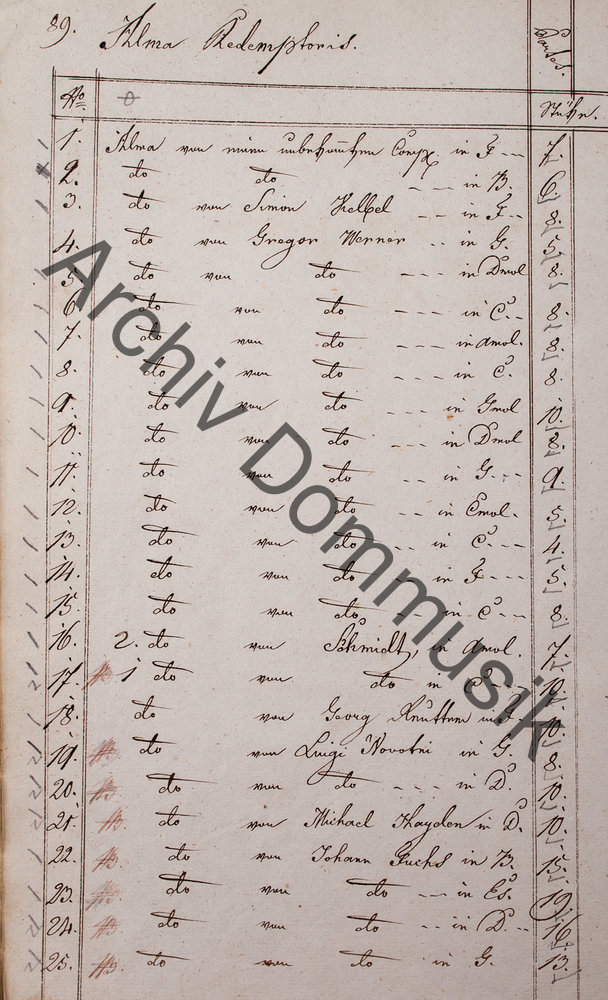 89. Alma Redemptoris.
Partes.
No. Stüke.
1. Alma von einem unbekannten Comp. in F -- 7.
2. do do -- in B. 6.
3. do von Simon Kelbel -- in F -- 8.
4. do von Gregor Werner -- in G. 5.
5. do von do --- in Dmol 8.
6 do von do --- in C -- 8.
7. do von do --- in Amol. 8.
8. do von do --- in C. 8.
9. do von do --- in Gmol 10.
10. do von do --- in Dmol 8.
11. do von do --- in G -- 9.
12. do von do --- in Emol. 5.
13. do von do -- in C -- 4.
14. do von do -- in F --- 5.
15. do von do - in C -- 8.
16. 2. do von Schmidt, in Amol. 7.
17. 1 do von do in C 10.
18. do von Georg Reutter in 10.
19. do von Luigi Novotni in G. 8.
20. do von do --- in D. 10.
21. do von Michael Hayden in D. 10.
22. do von Johann Fuchs in B. 15.
23. do von do --- in Es. 19.
24. do von do -- in D. -- 16.
25. do von do in G. 13.
Archiv Dommusik